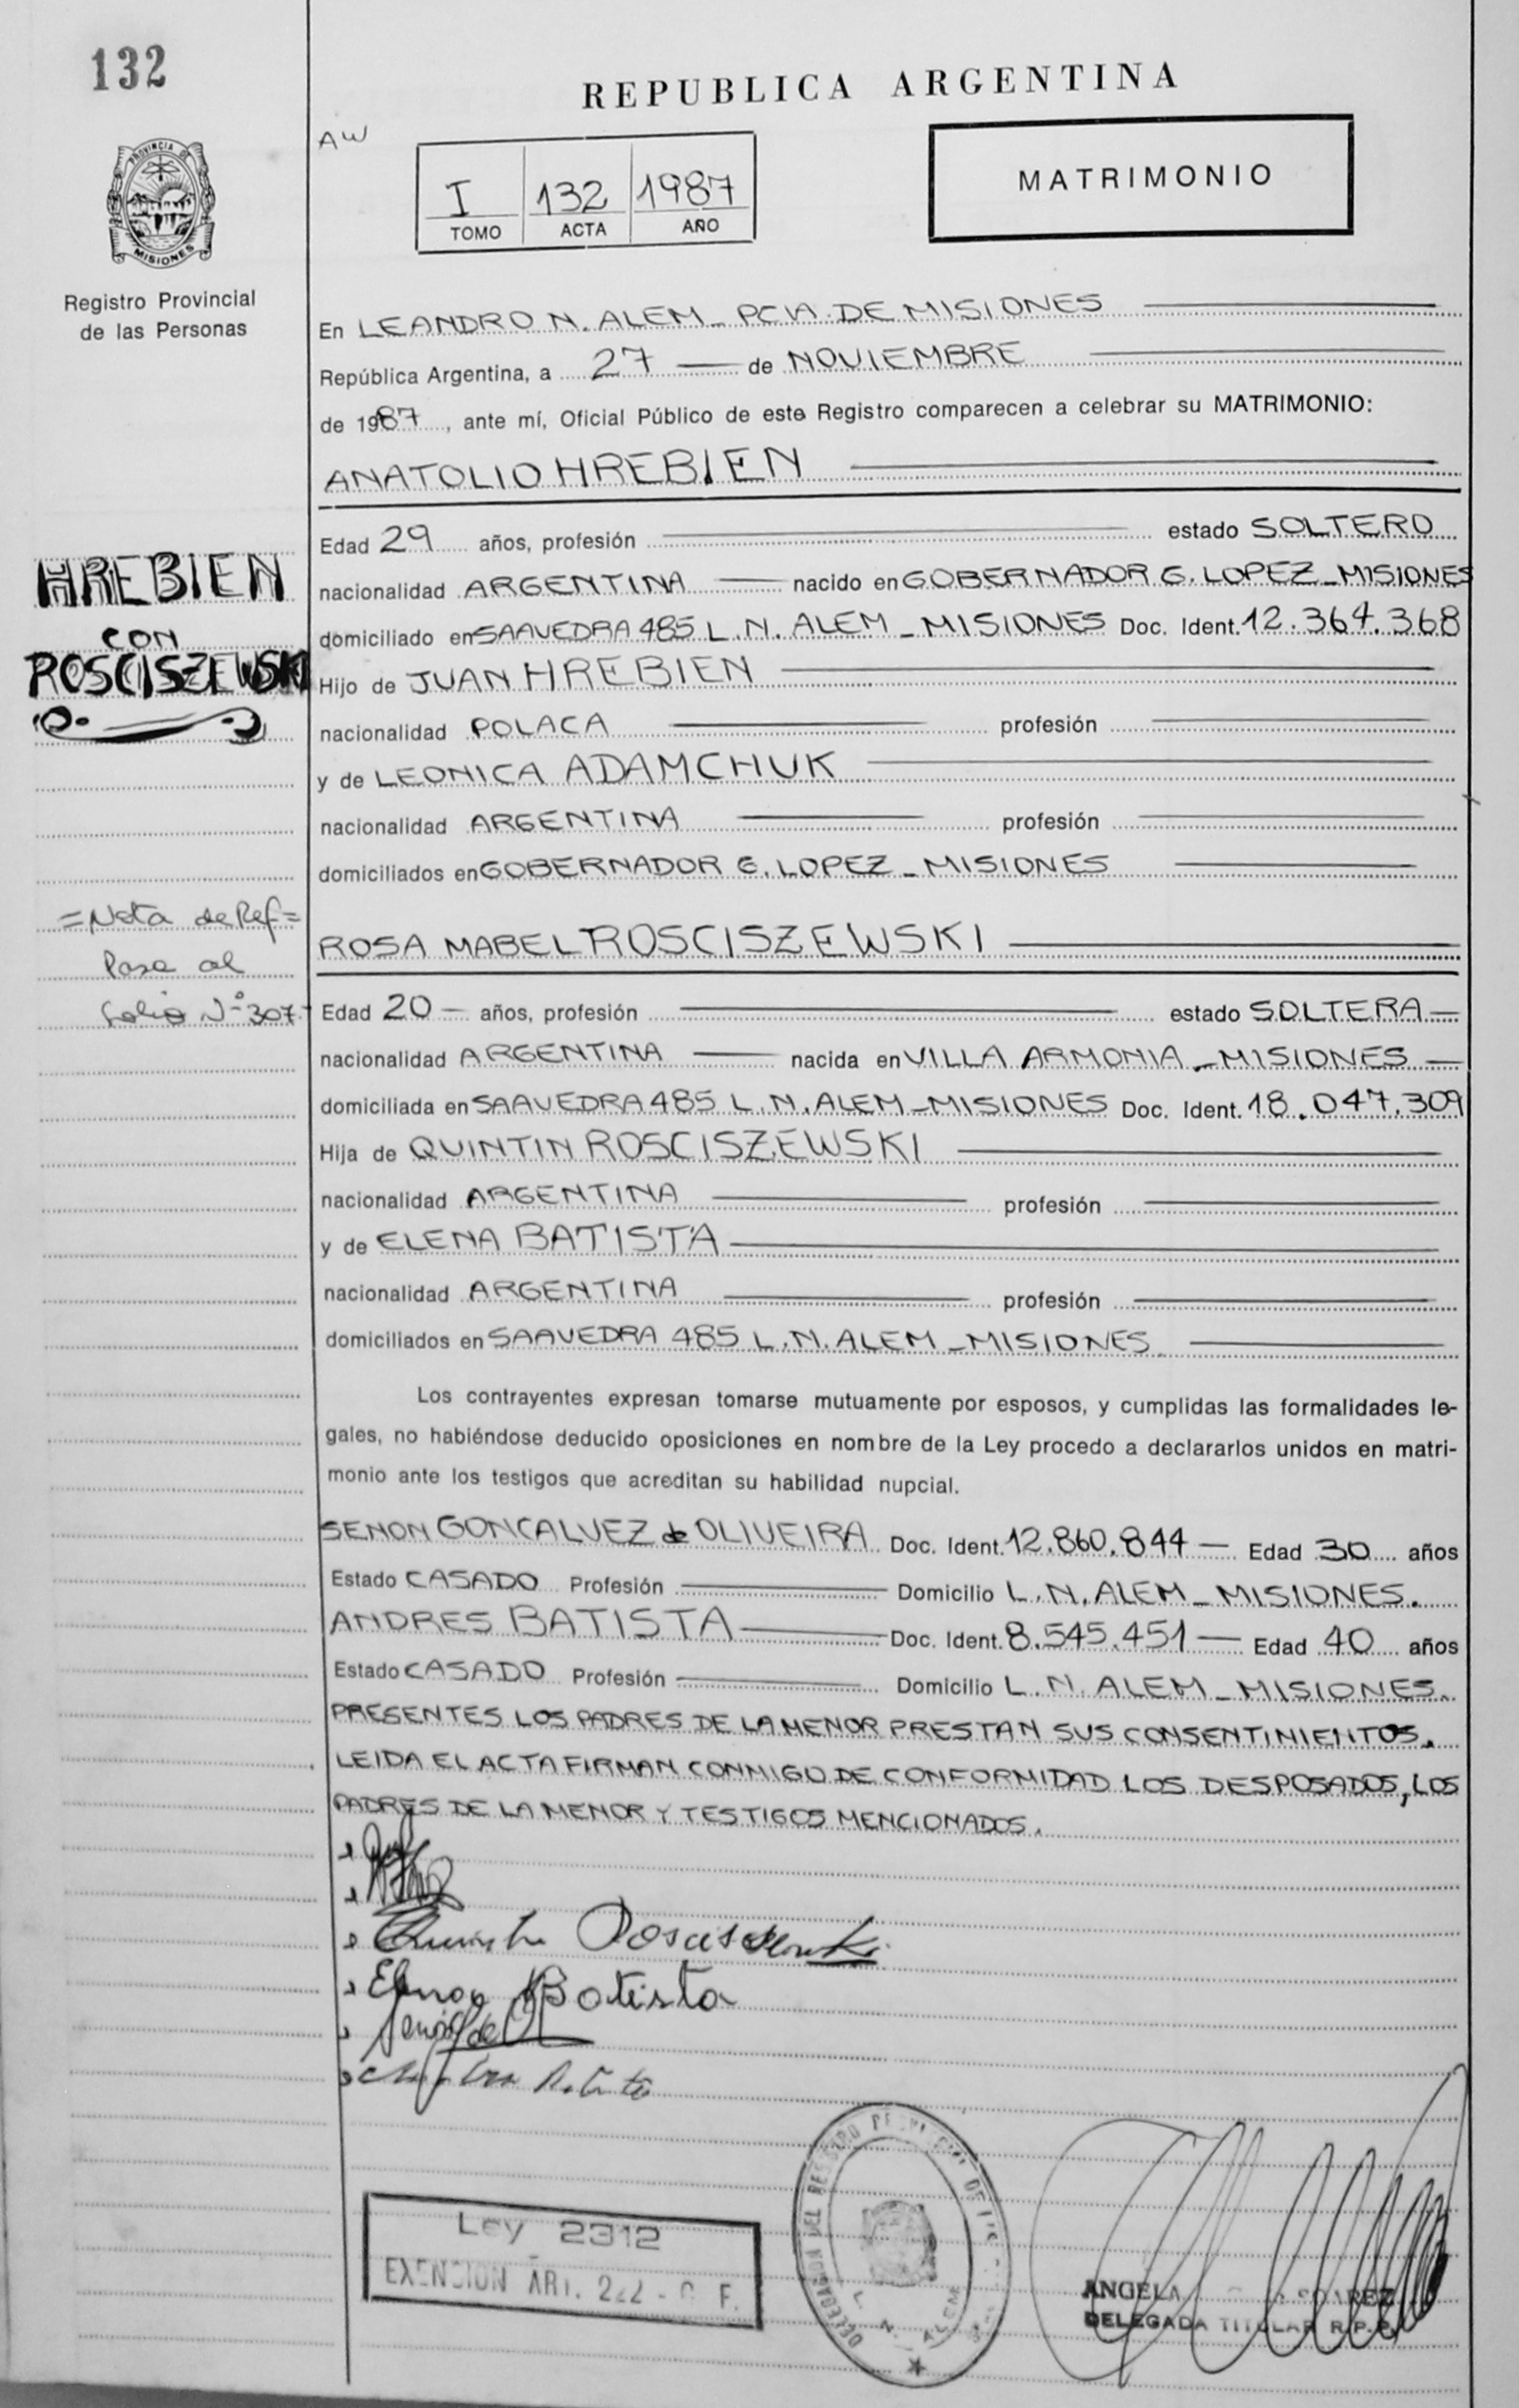 132
REPUBLICA ARGENTINA
AW
I 132 1987
TOMO ACTA AÑO
MATRIMONIO
PROVINCIA DE
MISIONES
Registro Provincial
de las Personas
En LEANDRO N. ALEM - PCIA. DE MISIONES
República Argentina, a 27 de NOVIEMBRE
de 1987, ante mí, Oficial Público de este Registro comparecen a celebrar su MATRIMONIO:
ANATOLIO HREBIEN
Edad 29 años, profesión estado SOLTERO
HREBIEN
CON
ROSCISZEWSKI
nacionalidad ARGENTINA nacido en GOBERNADOR G. LOPEZ - MISIONES
domiciliado en SAAVEDRA 485 L.N. ALEM - MISIONES Doc. Ident. 12.364.368
Hijo de JUAN HREBIEN
nacionalidad POLACA profesión
y de LEONICA ADAMCHUK
nacionalidad ARGENTINA profesión
domiciliados en GOBERNADOR G. LOPEZ - MISIONES
=Nota de Ref=
Pasa al
folio Nº 307-
ROSA MABEL ROSCISZEWSKI
Edad 20 - años, profesión estado SOLTERA
nacionalidad ARGENTINA nacida en VILLA ARMONIA - MISIONES
domiciliada en SAAVEDRA 485 L.N. ALEM - MISIONES Doc. Ident. 18.047.309
Hija de QUINTIN ROSCISZEWSKI
nacionalidad ARGENTINA profesión
y de ELENA BATISTA
nacionalidad ARGENTINA profesión
domiciliados en SAAVEDRA 485 L.N. ALEM - MISIONES
Los contrayentes expresan tomarse mutuamente por esposos, y cumplidas las formalidades le-
gales, no habiéndose deducido oposiciones en nombre de la Ley procedo a declararlos unidos en matri-
monio ante los testigos que acreditan su habilidad nupcial.
SENON GONCALVEZ de OLIVEIRA Doc. Ident. 12.860.844 - Edad 30 años
Estado CASADO Profesión Domicilio L.N. ALEM - MISIONES.
ANDRES BATISTA Doc. Ident. 8.545.451 - Edad 40 años
Estado CASADO Profesión Domicilio L.N. ALEM - MISIONES.
PRESENTES LOS PADRES DE LA MENOR PRESTAN SUS CONSENTIMIENTOS.
LEIDA EL ACTA FIRMAN CONMIGO DE CONFORMIDAD LOS DESPOSADOS, LOS
PADRES DE LA MENOR Y TESTIGOS MENCIONADOS.
Elena Batista
Ley 2312
EXENCION ART. 222 - C. F.
DELEGACION DEL REGISTRO
L. N. ALEM
ANGELA SOAREZ
DELEGADA TITULAR R.P.P.